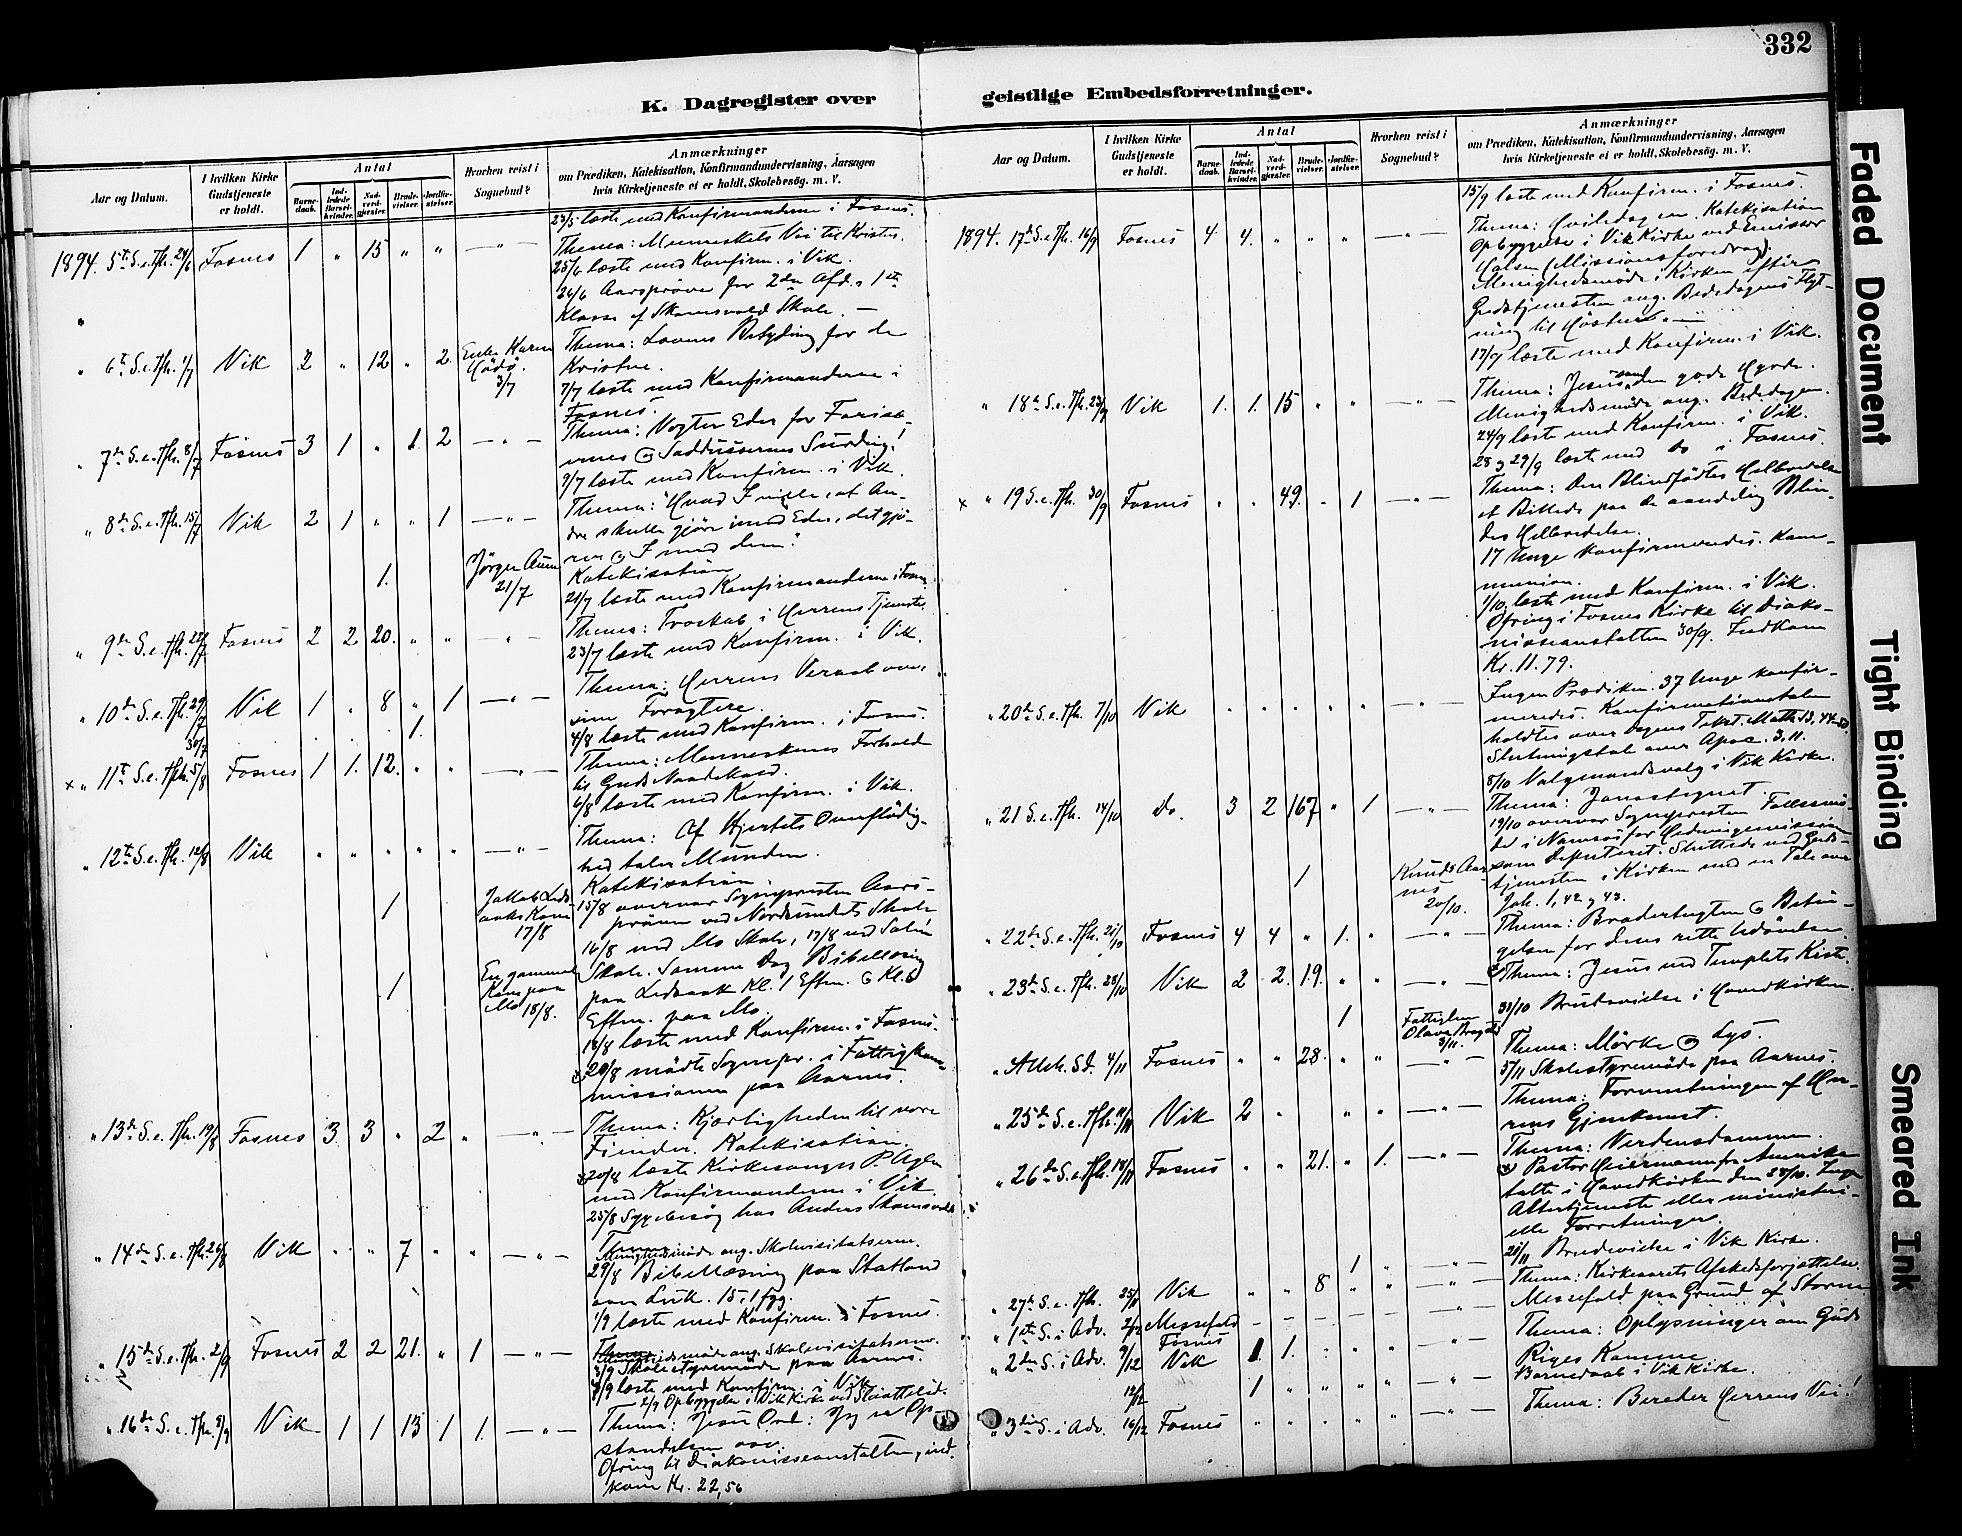 332
K. Dagregister over
geistlige Embedsforretninger.
Aar og Datum.
I hvilken Kirke Gudstjeneste er holdt.
Antal
Barne-daab.
Ind-ledede Barsel-kvinder.
Nad-verd-gjæster.
Brude-vielser.
Jordfæ-stelser.
Hvorhen reist i Sognebud?
Anmærkninger
om Prædiken, Katekisation, Konfirmandundervisning, Aarsagen
hvis Kirketjeneste ei er holdt, Skolebesög. m. V.
23/5 læste med Konfirmanderne i Fosnes.
1894. 5te S. e. Tfh. 24/6 Fosnes 1 " 15 " " — " — Thema: Menneskets Vei til Kristus.
25/6 læste med Konfirm. i Vik.
26/6 Aarsprøve for 2den Afd., 1ste
Klasse af Skomsvold Skole. —
" 6te S. e. Tfh. 1/7 Vik 2 " 12 " 2. Enke Karen 3/7 Thema: Lovens Betydning for de
Kristne.
7/7 læste med Konfirmanderne i
Fosnes.
" 7de S. e. Tfh. 8/7 Fosnes 3 1 " 1. 2 — " — Thema: Vogter Eder for Farisæ-
ernes og Saddusæernes Surdeig!
9/7 læste med Konfirm. i Vik.
" 8de S. e. Tfh. 15/7 Vik 2 1 " " 1 — " — Thema: "Hvad I ville, at An-
dre skulle gjøre imod Eder, det gjø-
rer og I mod dem."
1. Jörgen Aune 21/7 Katekisation
21/7 læste med Konfirmanderne i Fosnes
" 9de S. e. Tfh. 22/7 Fosnes 2 2 20. " " — " — Thema: Troskab i Herrens Tjeneste
23/7 læste med Konfirm. i Vik.
" 10de S. e. Tfh. 29/7 Vik 1 " 8 " 1 — " — Thema: Herrens Veraab over
sine Foragtere.
30/7 1. 4/8 læste med Konfirm. i Fosnes.
× " 11te S. e. Tfh. 5/8 Fosnes 1 1. 12. " " — " — Thema: Menneskenes Forhold
til Guds Naadekaar.
6/8 læste med Konfirm. i Vik.
" 12te S. e. Tfh. 12/8 Vik " " " " " — " — Thema: Af Hjertets Overflödig-
hed taler Munden.
Katekisation.
1 17/8 15/8 overvar Sognepresten Aars-
prøven ved Nordsundets Skole
16/8 ved Mo Skole, 17/8 ved Salen
Skole. Samme Dag Bibellæsning
1 En gammel Kone paa Mo 18/8. paa Ledsaak Kl. 1 Efterm. og Kl. 6
Efterm. paa Mo.
18/8 læste med Konfirm. i Fosnes.
20/8 mødte Sognepr. i Fattigkom-
missionen paa Aarnes.
" 13de S. e. Tfh. 19/8 Fosnes 3 3 " 2 " — " — Thema: Kjærligheden til vore
Fiender. Katekisation.
20/8 læste Kirkesanger P. Aglen
med Konfirmanderne i Vik.
25/8 Sygebesög hos Anders Skomsvold
" 14de S. e. Tfh. 26/8 Vik " " 7 " " — " — Menighedsmöde ang. Skolevisitatserne.
29/8 Bibellæsning paa Statland
over Luk. 15, 1 fgg.
1/9 læste med Konfirm. i Fosnes.
" 15de S. e. Tfh. 2/9 Fosnes 2 2 21. " 1 — " — Menighedsmöde ang. Skolevisitatserne.
3/9 Skolestyremöde paa Aarnes.
3/9 læste med Konfirm. i Vik
2/9 Opbyggelse i Vik Kirke ved
" 16de S. e. Tfh. 9/9 Vik 1 1 13 1 1. — " — Thema: Jesu Ord: Jeg er Op-
standelsen osv.
Ofring til Diakonisseanstalten, ind-
kom Kr. 22,56
Aar og Datum.
I hvilken Kirke Gudstjeneste er holdt.
Antal
Barne-daab.
Ind-ledede Barsel-kvinder.
Nad-verd-gjæster.
Brude-vielser.
Jordfæ-stelser.
Hvorhen reist i Sognebud?
Anmærkninger
om Prædiken, Katekisation, Konfirmandundervisning, Aarsagen
hvis Kirketjeneste ei er holdt, Skolebesög. m. V.
15/9 læste med Konfirm. i Fosnes.
1894. 17de S. e. Tfh. 16/9 Fosnes 4 4. " " " — " — Thema: Hviledagen. Katekisation
Opbyggelse i Vik Kirke ved Emissær
(Missionsforedrag).
Menighedsmöde i Kirken efter
Gudstjenesten ang. Bededagens Flyt-
ning til Hösten. —
17/9 læste med Konfirm. i Vik.
" 18de S. e. Tfh. 23/9 Vik 1. 1. 15 " " — " — Thema: Jesus som den gode Hyrde.
Menighedsmöde ang. Bededagen.
24/9 læste med Konfirm. i Vik.
28 og 29/9 læste med do i Fosnes.
× " 19 S. e. Tfh. 30/9 Fosnes " " 49. " 1 — " — Thema: Den Blindfødtes Helbredelse
et Billede paa de aandelig Blin-
des Helbredelse.
17 Unge konfirmeredes. Kom-
munion.
1/10. læste med Konfirm. i Vik.
Ofring i Fosnes Kirke til Diako-
nisseanstalten 30/9. Indkom
Kr. 11.79.
" 20de S. e. Tfh. 7/10 Vik " " " " " — " — Ingen Prædiken. 37 Unge konfir-
meredes. Konfirmationstalen
holdtes over Dagens Tekst. Matth. 13, 44-50.
Slutningstale over Apoc. 3, 11.
8/10 Valgmandsvalg i Vik Kirke.
" 21 S. e. Tfh. 14/10 Do. 3 2 167 " 1 — " — Thema: Jonastegnet
19/10 overvar Sognepresten
i Namsos for Hedningemissionen
som Deputeret. Sluttede ved Guds-
1 Knud Aarnes 20/10. tjenesten i Kirken med en Tale over
Joh. 1, 42 og 43.
" 22de S. e. Tfh. 21/10 Fosnes 4 4 " 1. " — " — Thema: Brodertugten og Betin-
gelsen for dens rette Udøvelse
" 23de S. e. Tfh. 28/10 Vik 2 2. 19. " " — " — Thema: Jesus ved Templets Kiste.
31/10 Brudevielse i Hovedkirken.
1 Fattiglem Olava 3/11.
" Alleh. S.D. 4/11 Fosnes " " 28. " " — " — Thema: Mörke og Lys.
5/11 Skolestyremöde paa Aarnes.
" 25de S. e. Tfh. 11/11 Vik 2 " " " — " — Thema: Forventningen af Her-
rens Gjenkomst.
" 26de S. e. Tfh. 18/11 Fosnes " " 21. " 1. — " — Thema: Verdensdommen.
Pastor fra Amerika
talte i Hovedkirken den 28/10. Ingen
Altertjeneste eller ministeri-
elle Forretninger.
1 " — " — 21/11 Brudevielse i Vik Kirke.
" 27de S. e. Tfh. 25/11 Vik " " 8 " " — " — Thema: Kirkeaarets Afskedsforjættelse.
" 1ste S. i Adv. 2/12 Messefald — — — — — — " — Messefald paa Grund af Storm
" 2den S. i Adv. 9/12 Fosnes 1. 1. " " " — " — Thema: Oplysninger om Guds
Riges Komme
12/12 Vik 1 " " " " — " — Barnedaab i Vik Kirke.
" 3die S. i Adv. 16/12 Fosnes " " " " " — " — Thema: Bereder Herrens Vei!
Faded Document
Tight Binding
Smeared Ink